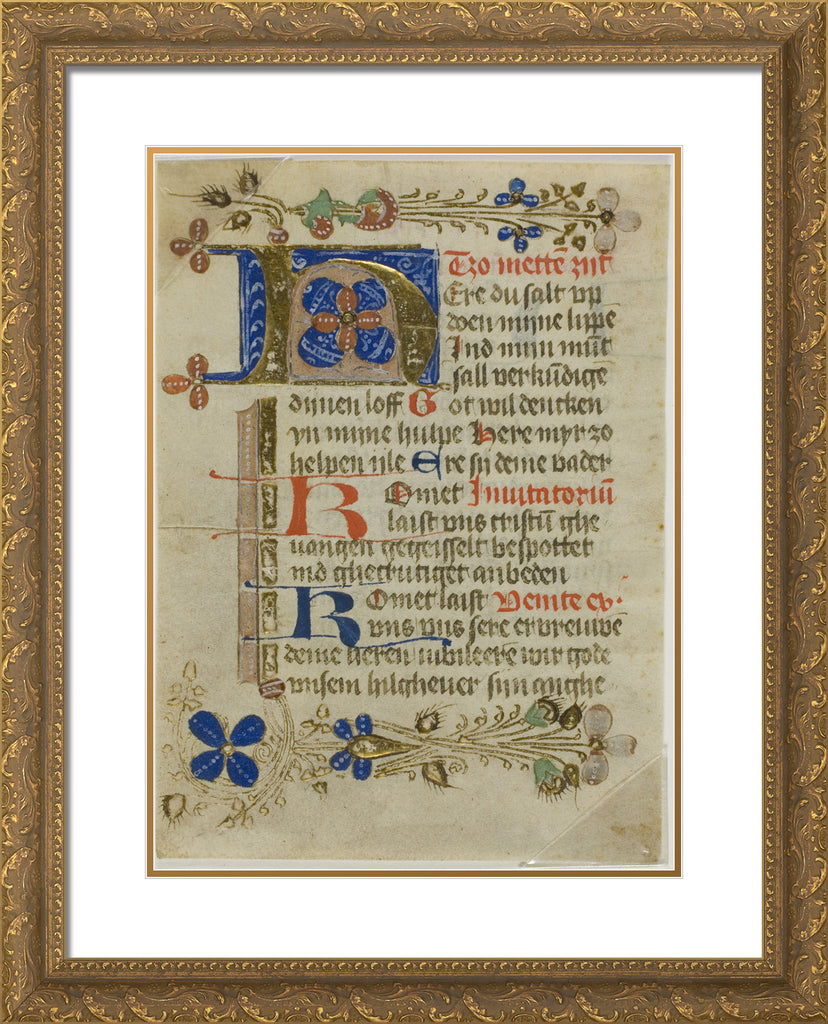 Tzo mettē zijt
HEre du salt vp
doen mijne lippe
Ind min mūt
sall verkūdige
dijnen loff Got wil dencken
yn mijne hulpe Here myr zo
helpen ijle Ere sij deme vader
Komet Inuitatoriū
laist vns cristū ghe
uangen gegeisselt bespottet
ind ghecrutiget anbeden
Komet laist Venite ex·
vns vns sere ervreuwē
deme heren iubileere wir gode
vnsem hilgheuer sijn